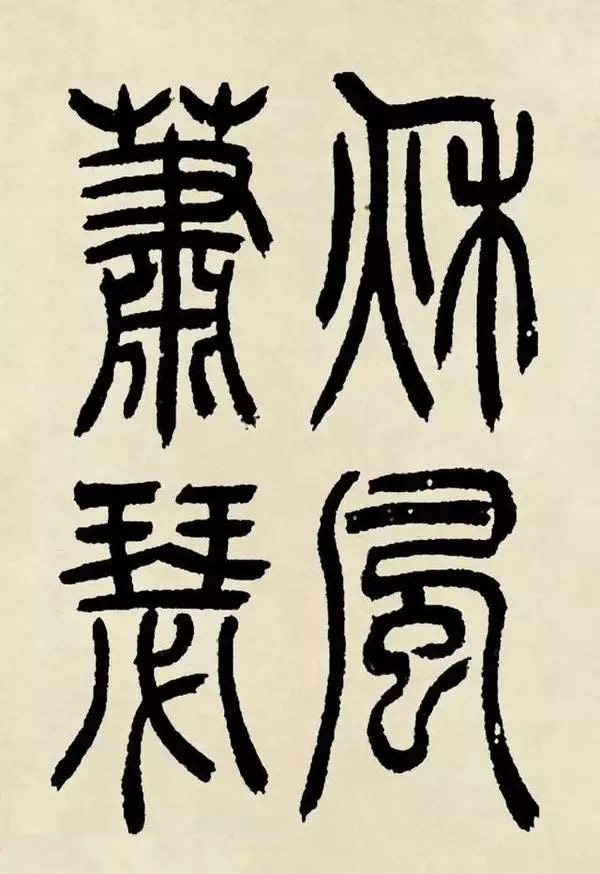 秋風
蕭瑟